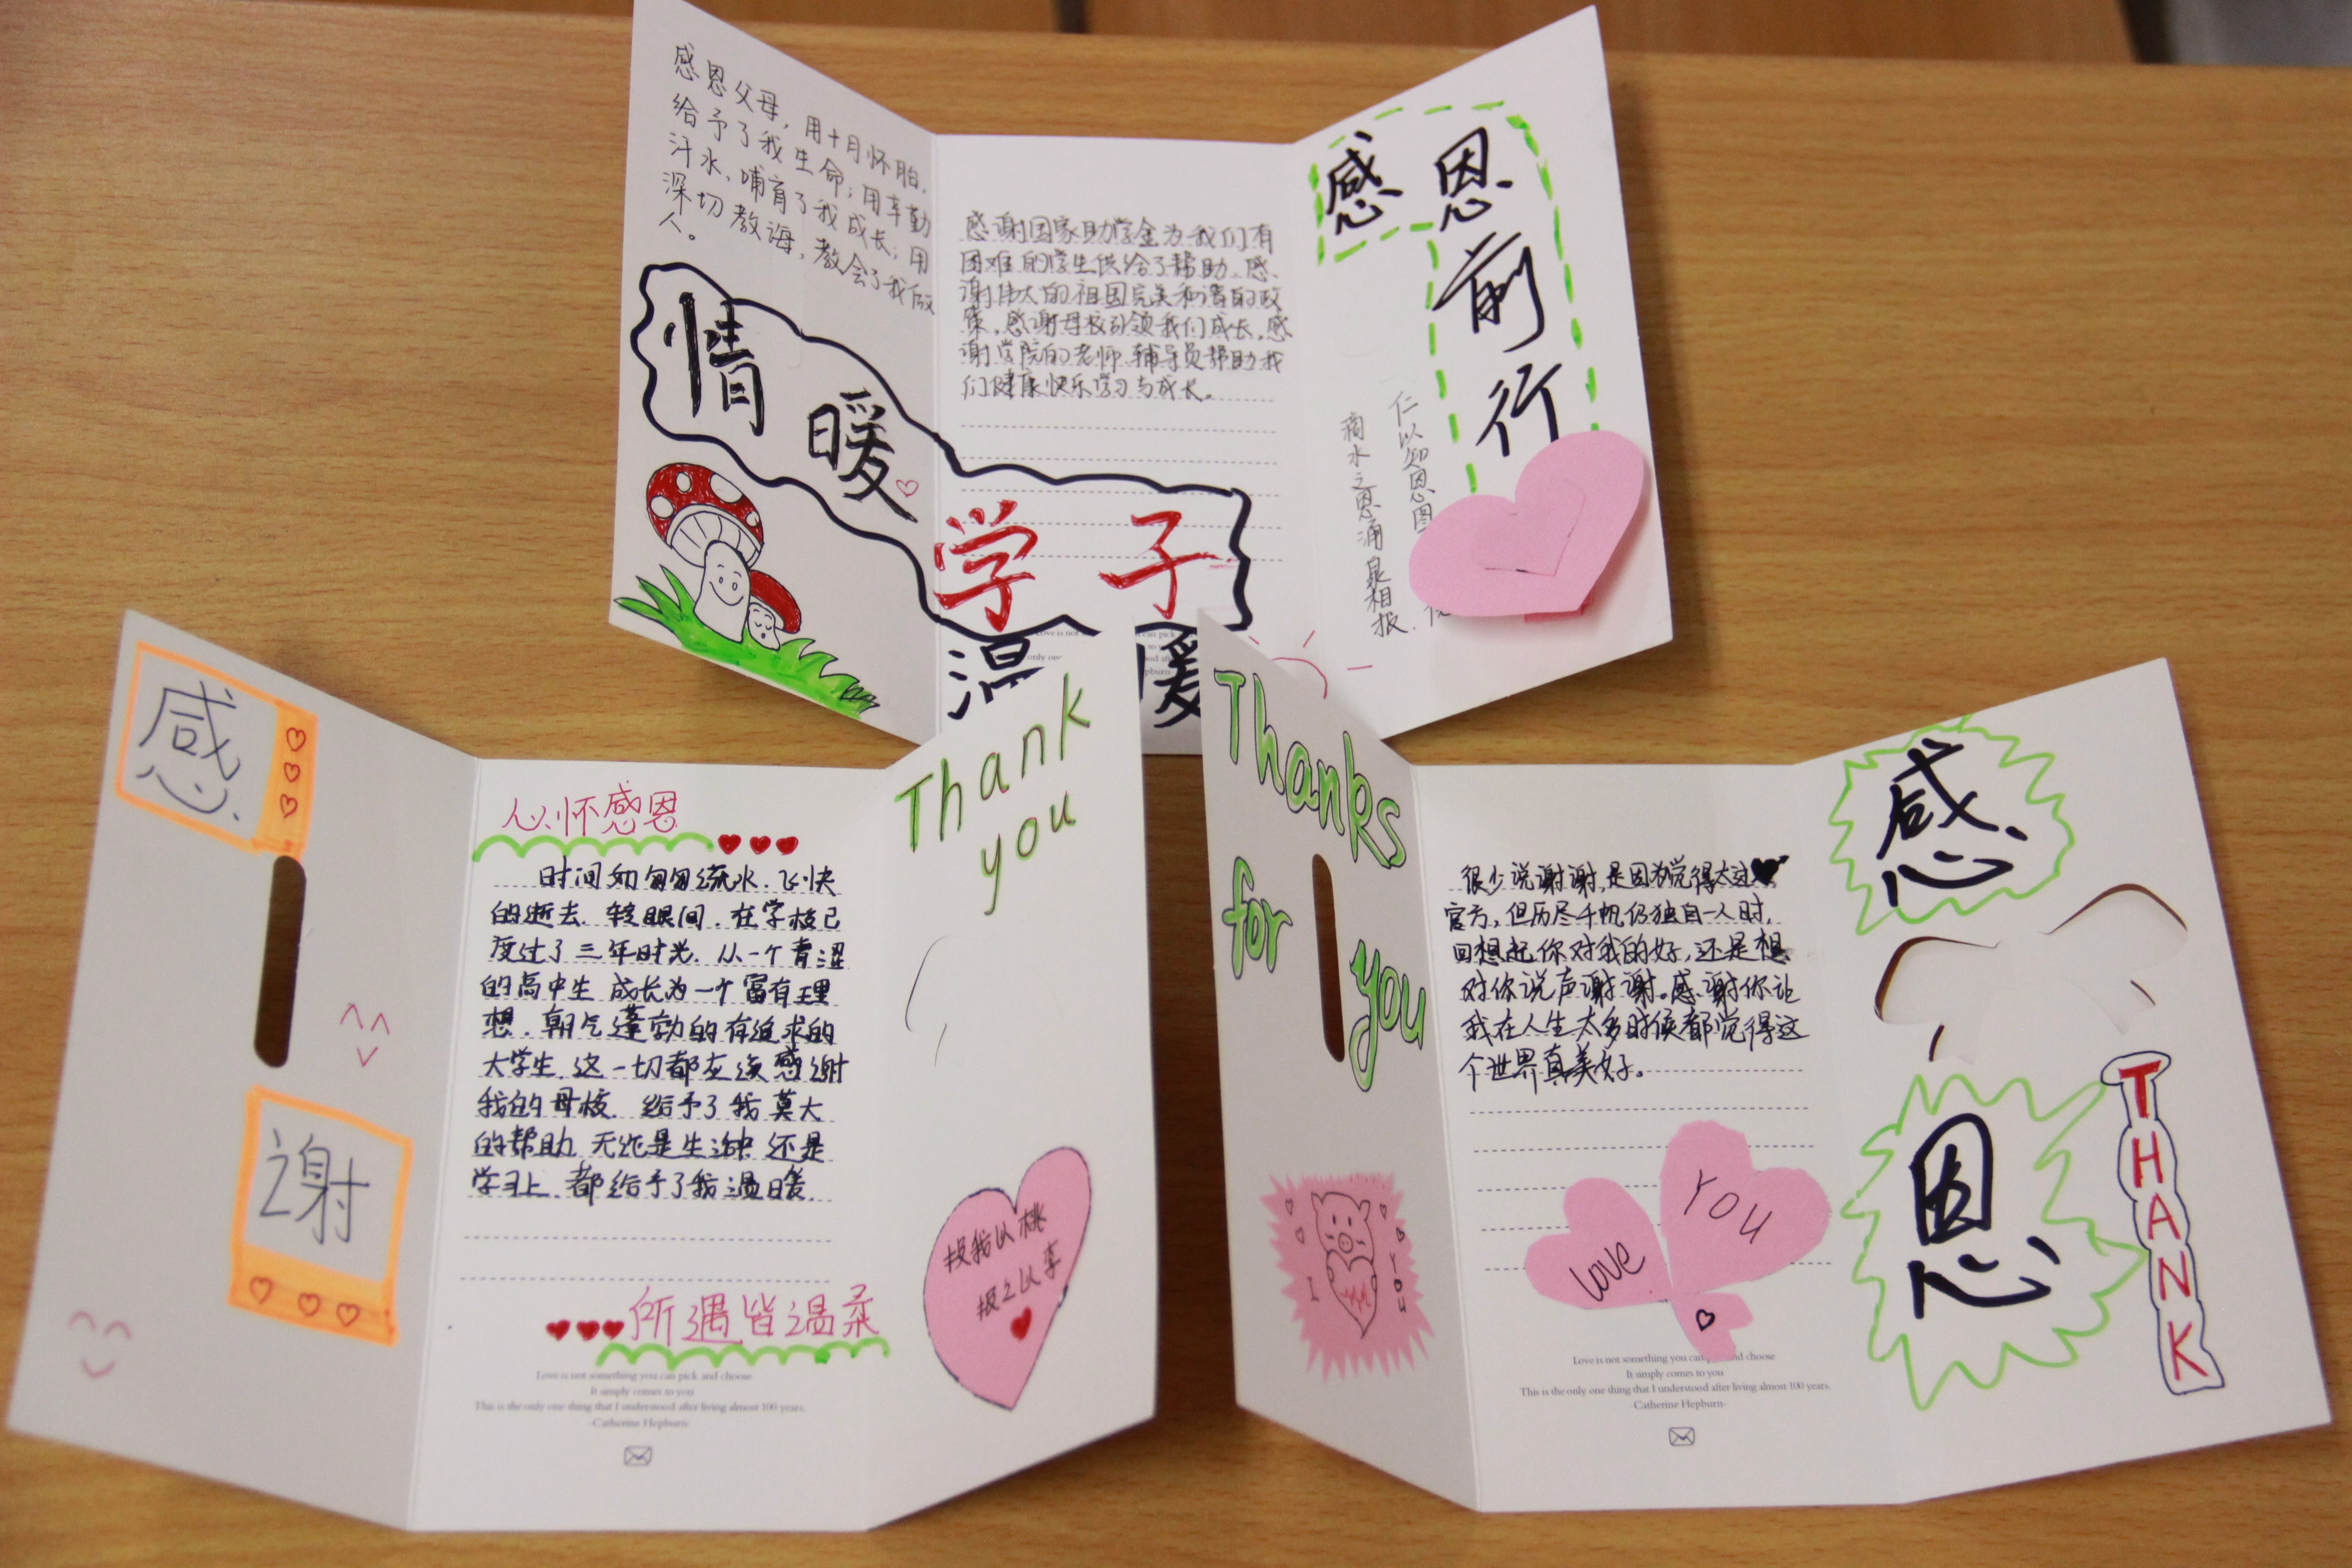 感恩父母，用十月怀胎，
给予了我生命；用辛勤
汗水，哺育了我成长；用
深切教诲，教会了我做
人。
情暖
学子
感谢国家助学金为我们有
困难的学生供给了帮助。感
谢伟大的祖国完美和谐的政
策，感谢母校引领我们成长，感
谢学院的老师、辅导员帮助我
们健康快乐学习与成长。
温暖
only one
感恩
前
行
仁以知恩图
滴水之恩涌泉相报.
感
谢
心怀感恩
时间如匆匆流水.飞快
的逝去.转眼间.在学校已
度过了三年时光.从一个青涩
的高中生成长为一个富有理
想.朝气蓬勃的有追求的
大学生.这一切都应该感谢
我的母校.给予了我莫大
的帮助.无论是生活中还是
学习上.都给予了我温暖.
所遇皆温柔
Love is not something you can pick and choose
It simply comes to you
This is the only one thing that I understood after living almost 100 years.
-Catherine Hepburn-
Thank
you
投我以桃
报之以李
Thanks
for
you
I
YOU
很少说谢谢,是因为觉得太过
官方,但历尽千帆仍独自一人时,
回想起你对我的好,还是想
对你说声谢谢。感谢你让
我在人生太多时候都觉得这
个世界真美好。
love
YOU
Love is not something you can and choose
It simply comes to you
This is the only one thing that I understood after living almost 100 years.
-Catherine Hepburn-
感
恩
THANK